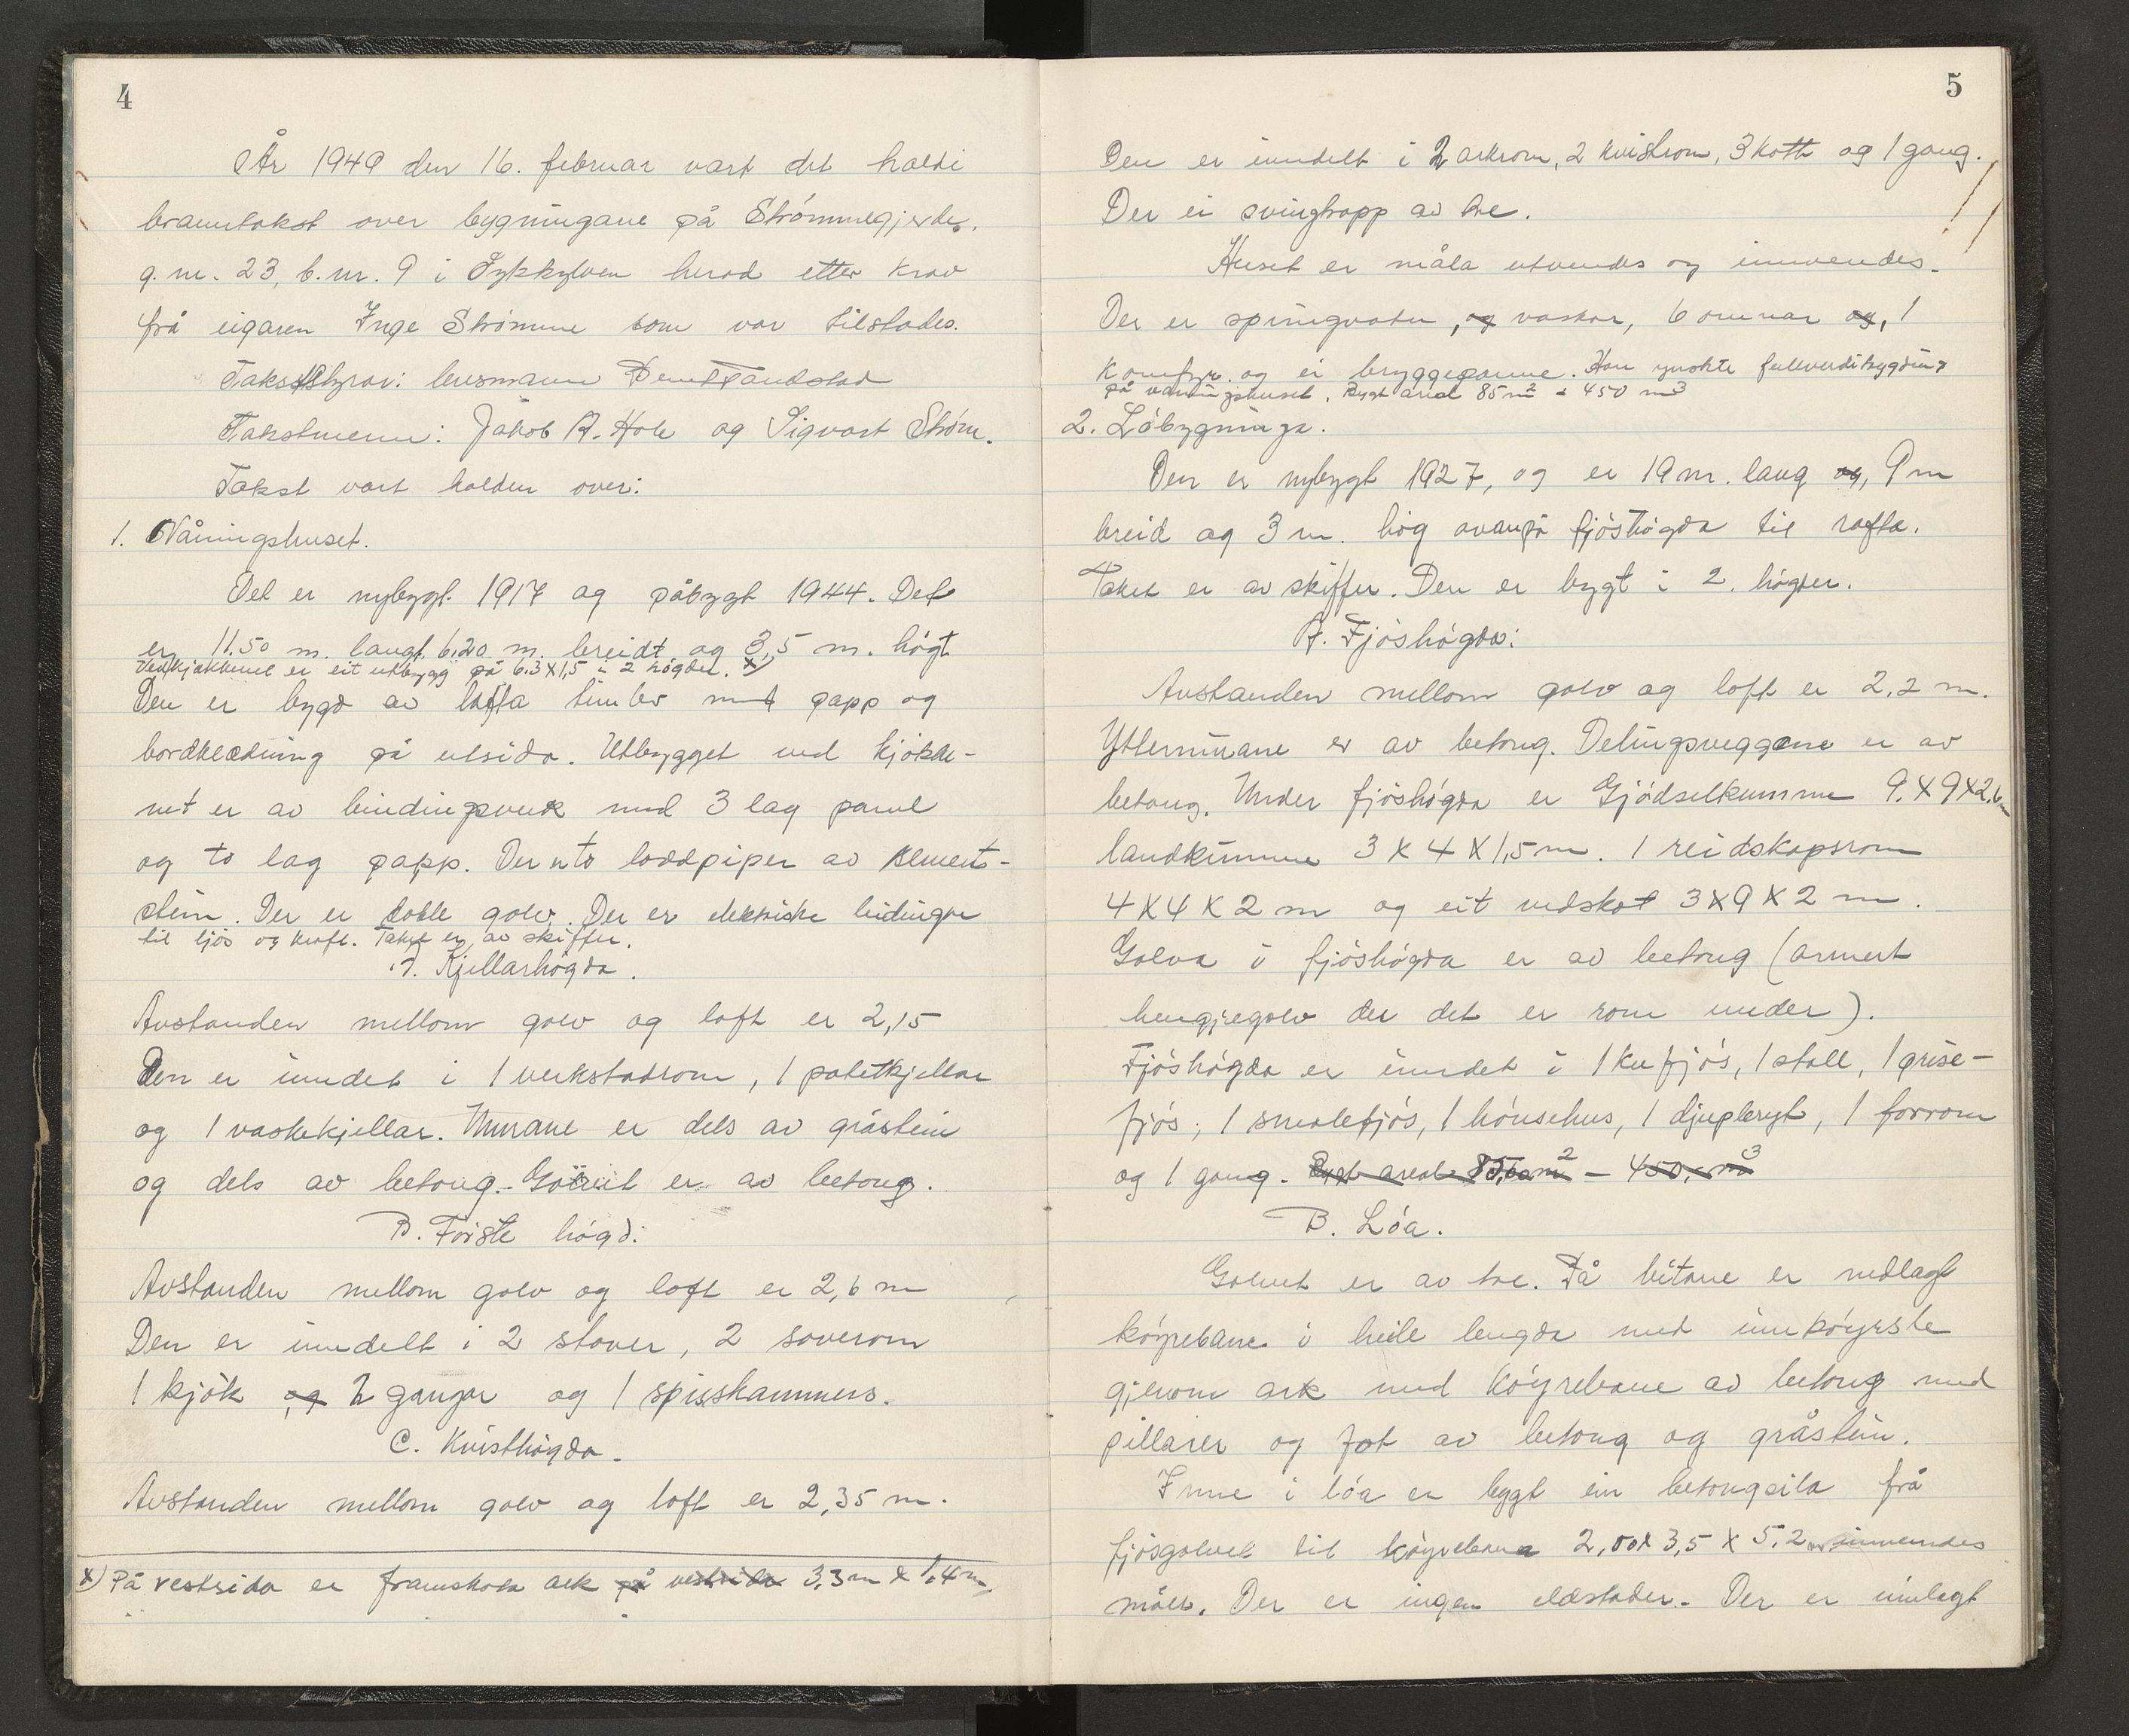 4
År 1949 den 16. februar vart det haldi
branntakst over bygningane på Strømmegjerde,
g.nr. 23, b.nr. 9 i Sykkylven herad etter krav
frå eigaren Inge Strømme som var tilstades.
Takststyrar: lensmann
Takstmenn: Jakob A. Hole og Sigvart Strøm.
Takst vart halden over:
1. Våningshuset.
Det er nybygt 1917 og påbygt 1944. Det
er 11.50 m. langt, 6,20 m. breidt og 3,5 m. høgt
Ved kjøkkenet er eit utbygg på 6.3x1,5 i 2 høgder. x)
Den er bygd av lafta timber med papp og
bordkledning på utsida. Utbygget ved kjøkke-
net er av bindingsverk med 3 lag panel
og to lag papp. Der er to loddpiper av sement-
stein. Der er doble golv. Der er elektriske leidingar
til ljos og kraft. Taket er av skiffer.
A. Kjellarhøgda.
Avstanden mellom golv og loft er 2,15
Den er inndelt i 1 verkstadrom, 1 potetkjellar
og 1 vaskekjellar. Murane er dels av gråstein
og dels av betong. Golvet er av betong.
B. Første høgd:
Avstanden mellom golv og loft er 2,6 m
Den er inndelt i 2 stover, 2 soverom
1 kjøk og 2 gangar og 1 spisskammers.
C. Kvisthøgda.
Avstanden mellom golv og loft er 2,35 m.
x) På vestsida er framskota ark på vestsida 3,3 m x 1,4 m.
5
Den er inndelt i 2 arkrom, 2 kvistrom, 3 kott og 1 gang.
Der ei svingtrapp av tre.
Huset er måla utvendes og innvendes.
Der er springvatn, og vaskar, 6 omnar og, 1
komfyr. og ei bryggepanne. Han ynskte fullverdibygding
på våningshuset. Bygt areal 85 m2 - 450 m3
2. Løbygninga.
Den er nybygt 1927, og er 19 m. lang og, 9 m
breid og 3 m. høg ovanpå fjøshøgda til rafta.
Taket er av skiffer. Den er bygt i 2. høgder.
A. Fjøshøgda:
Avstanden mellom golv og loft er 2,2 m.
Yttermurane er av betong. Delingsveggene er av
betong. Under fjøshøgda er Gjødselkumme 9.x9x2,6m
landkumme 3 x 4 x 1,5 m. 1 reidskapsrom
4 x 4 x 2 m og eit vedskot 3x9x2 m.
Golva i fjøshøgda er av betong (armert
hengjegolv der det er rom under).
Fjøshøgda er inndet i 1 kufjøs, 1 stall, 1 grise-
fjøs, 1 smalefjøs, 1 hønsehus, 1 djupleryt, 1 forrom
og 1 gang. Bygt areal 85,60 m2 - 450, m3
B. Løa.
Golvet er av tre. På bitane er nedlagt
køyrebane i heile lengda med innkøyrsle
gjenom ark med køyrebane av betong med
pillarer og fot av betong og gråstein.
Inne i løa er bygt ein betongsilo frå
fjøsgolvet til køyrebana 2,00x 3,5 x 5,2 m innvendes
måls. Der er ingen eldstader. Der er innlagt